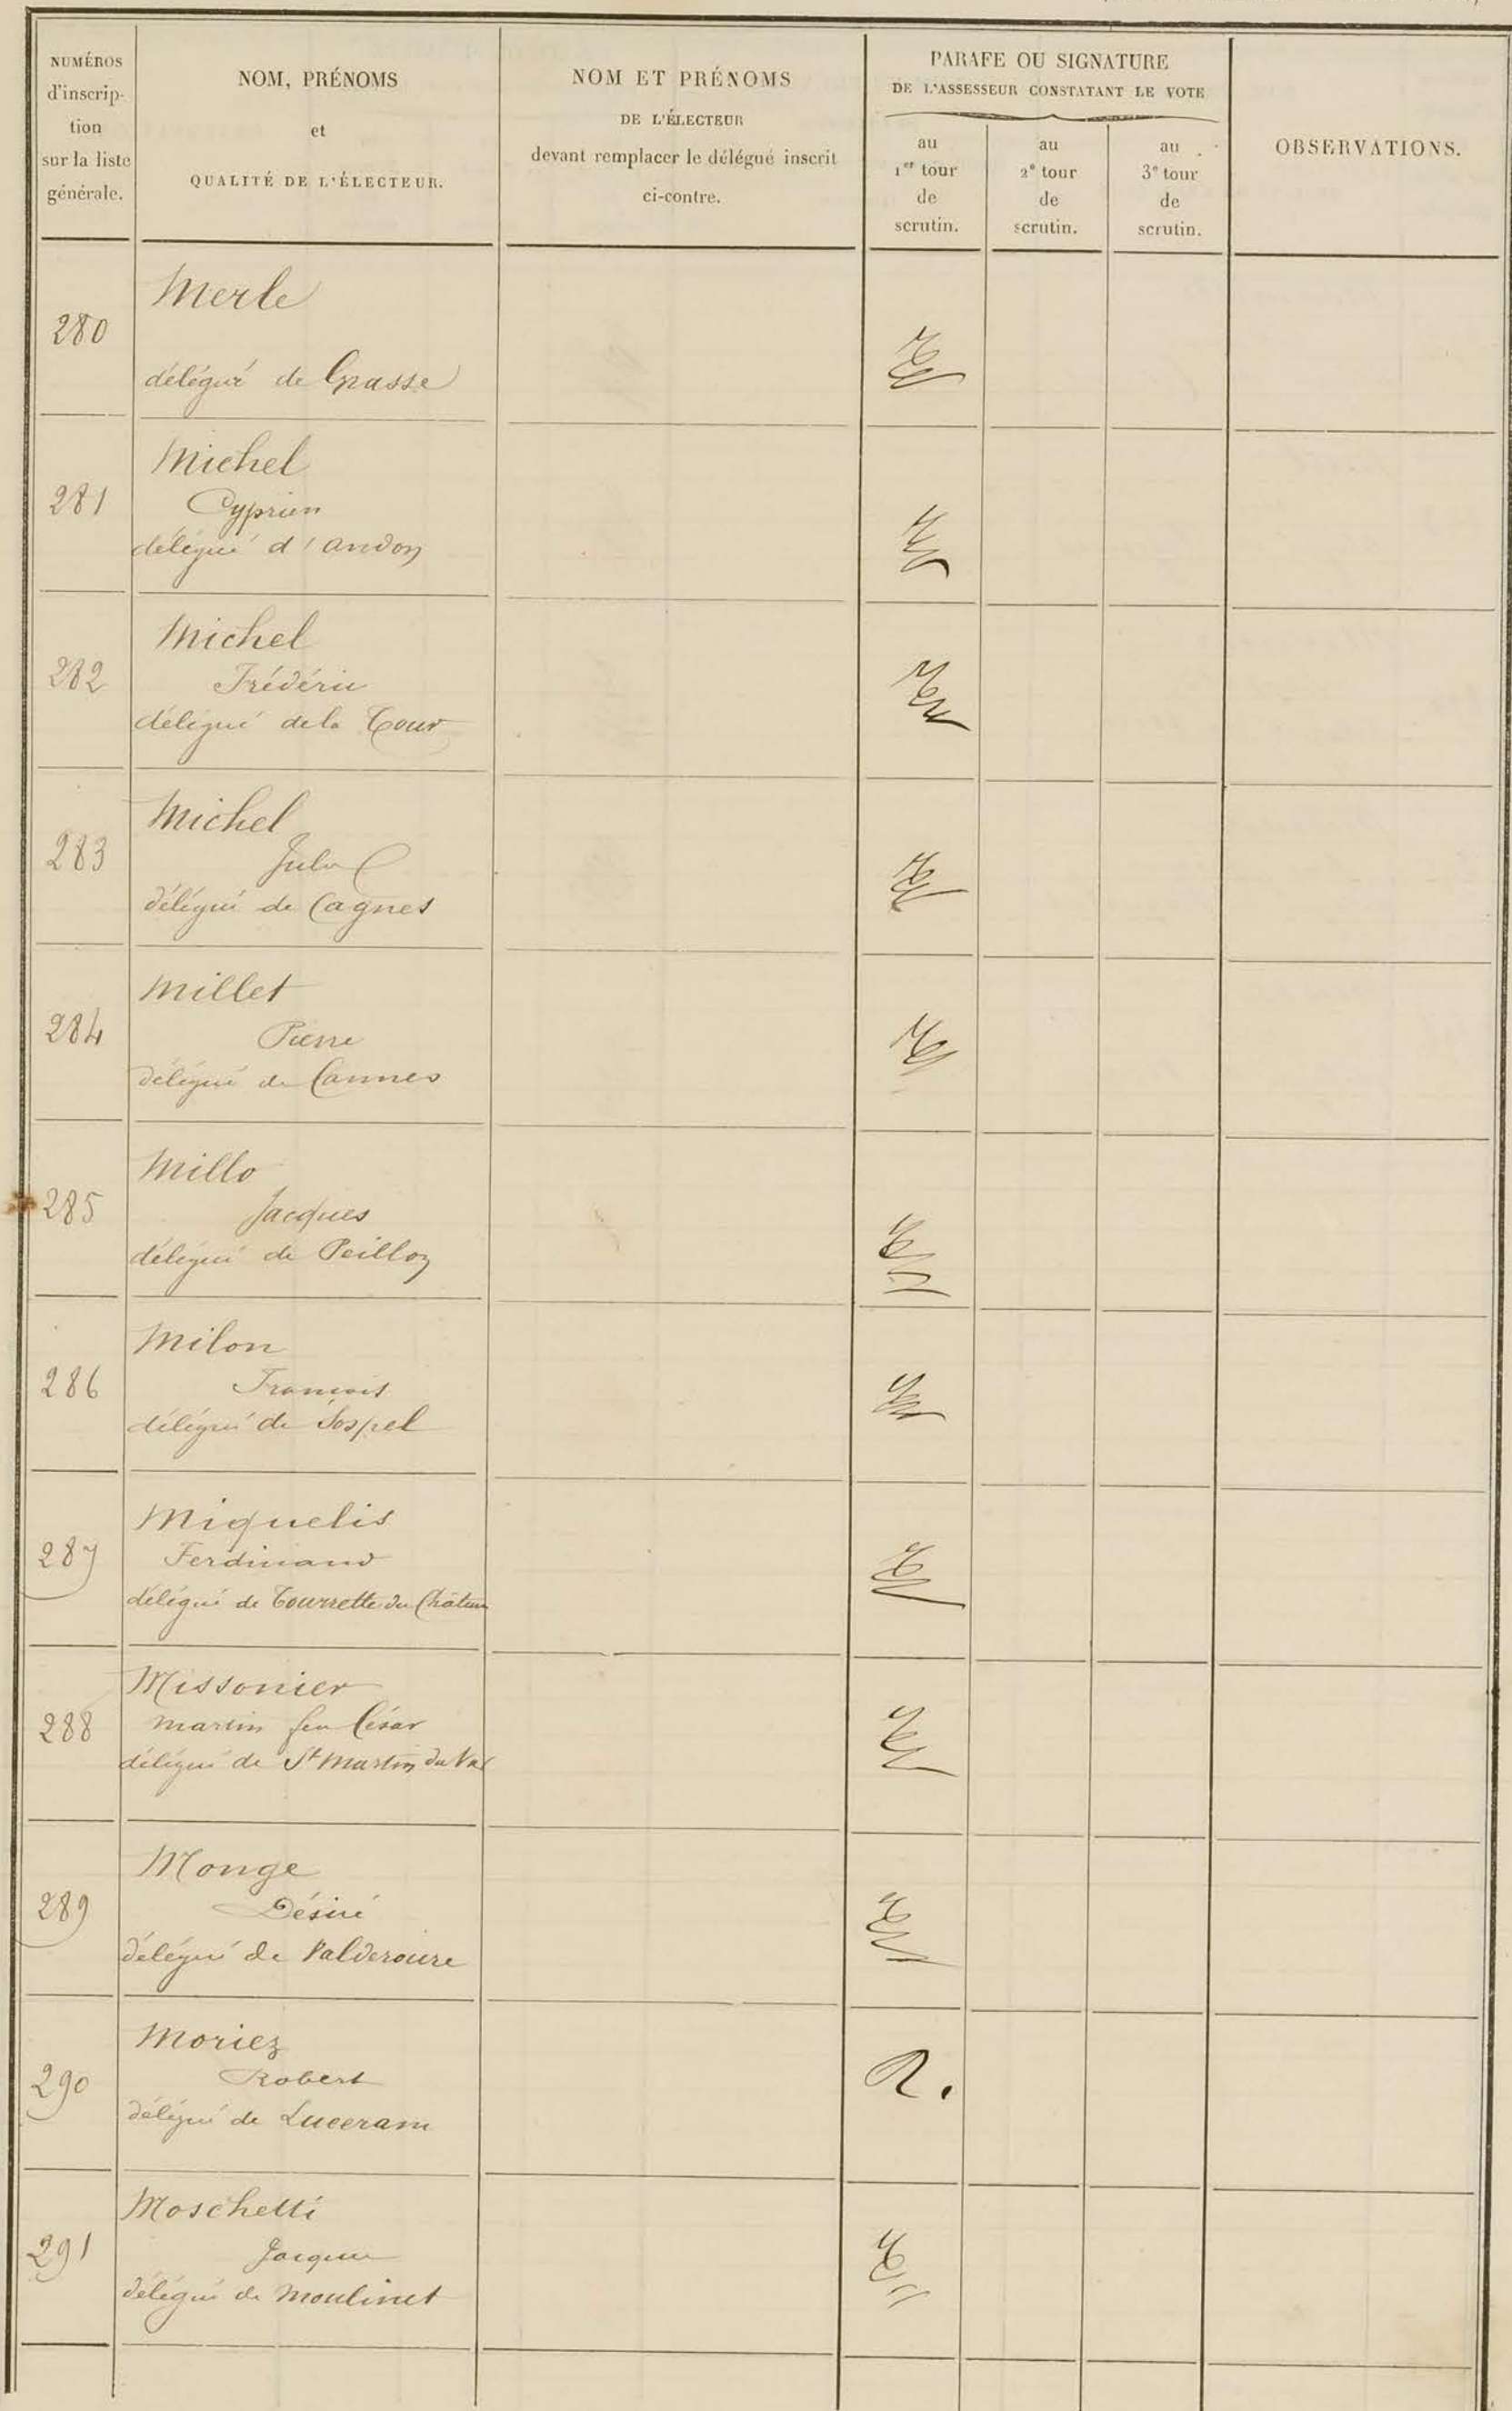 NUMÉROS
d'inscrip-
tion
sur la liste
générale.
NOM, PRÉNOMS
et
QUALITÉ DE L'ÉLECTEUR.
NOM ET PRÉNOMS
DE L'ÉLECTEUR
devant remplacer le délégué inscrit
ci-contre.
PARAFE OU SIGNATURE
DE L'ASSESSEUR CONSTATANT LE VOTE
au
1er tour
de
scrutin.
au
2e tour
de
scrutin.
au
3e tour
de
scrutin.
OBSERVATIONS.
280
Merle
délégué de Grasse
281
Michel
Cyprien
délégué d'Andon
282
Michel
Frédéric
délégué de la Tour
283
Michel
Jules
délégué de Cagnes
284
Millet
Pierre
délégué de Cannes
285
Millo
Jacques
délégué de Peillon
286
Milon
François
délégué de Sospel
287
Miquelis
Ferdinand
délégué de Tourrette du Château
288
Missonier
Martin feu César
délégué de St Martin du Var
289
Monge
Désiré
délégué de Valderoure
290
Moriez
Robert
délégué de Luceram
R.
291
Moschetti
Jacques
délégué de Moulinet